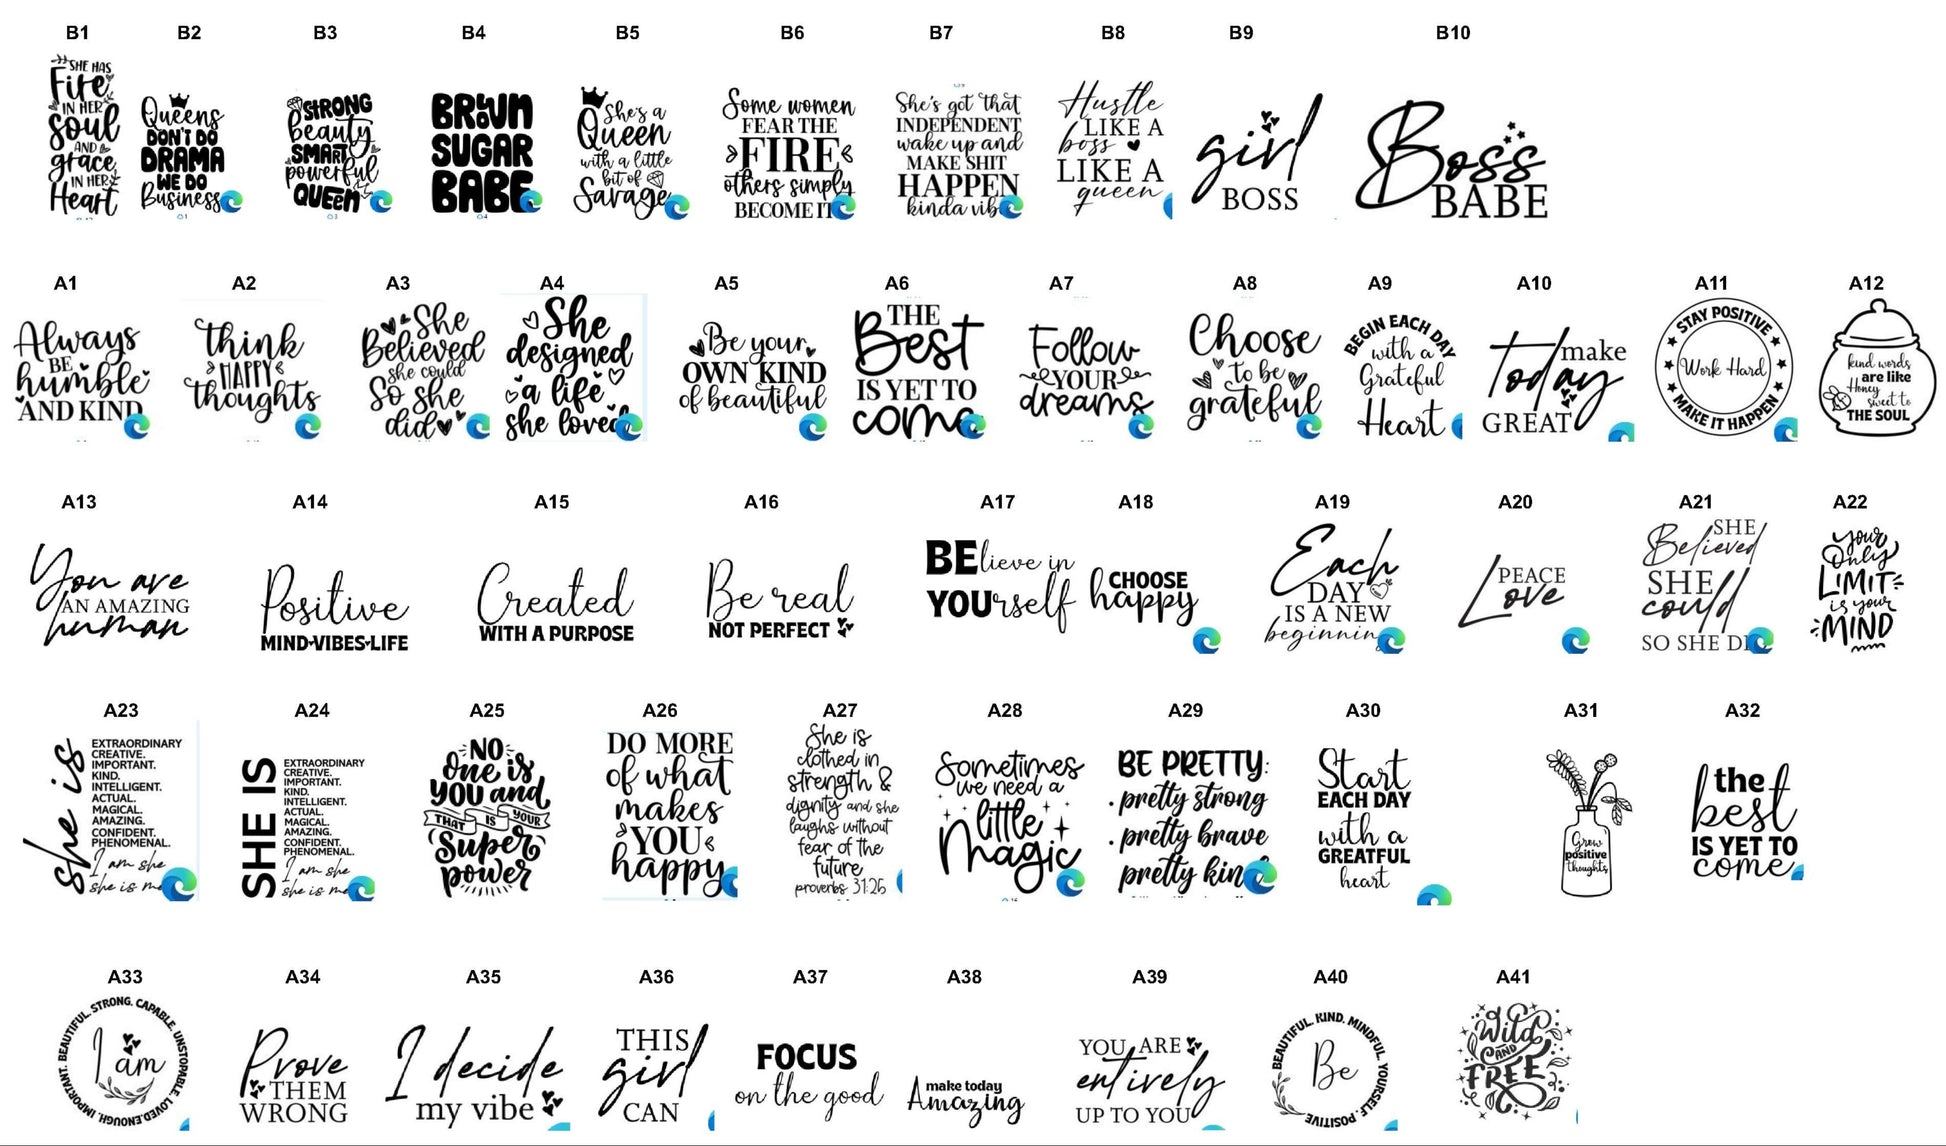 B1
B2
B3
B4
B5
B6
B7
B8
B9
B10
SHE HAS
Fire
IN HER
soul
AND
grace
IN HER
Heart
Queens
DON'T DO
DRAMA
WE DO
Business
STRONG
beauty
SMART
powerful
QUEEN
BROWN
SUGAR
BABE
She's a
Queen
with a little
bit of
Savage
Some women
FEAR THE
FIRE
others simply
BECOME IT
She's got that
INDEPENDENT
wake up and
MAKE SHIT
HAPPEN
kinda vib
Hustle
LIKE A
boss
LIKE A
queen
girl
BOSS
Boss
BABE
A1
A2
A3
A4
A5
A6
A7
A8
A9
A10
A11
A12
Always
BE
humble
AND KIND
think
HAPPY
thoughts
She
Believed
she could
So she
did
She
designed
a life
she loved
Be your
OWN KIND
of beautiful
THE
Best
IS YET TO
come
Follow
YOUR
dreams
Choose
to be
grateful
BEGIN EACH DAY
with a
Grateful
Heart
make
today
GREAT
STAY POSITIVE
Work Hard
MAKE IT HAPPEN
kind words
are like
Honey
sweet to
THE SOUL
A13
A14
A15
A16
A17
A18
A19
A20
A21
A22
You are
AN AMAZING
human
Positive
MIND VIBES LIFE
Created
WITH A PURPOSE
Be real
NOT PERFECT
BElieve in
YOUrself
CHOOSE
happy
Each
DAY
IS A NEW
beginnin
PEACE
Love
SHE
Believed
SHE
could
SO SHE DI
your
Only
LIMIT
is your
MIND
A23
A24
A25
A26
A27
A28
A29
A30
A31
A32
she is
EXTRAORDINARY
CREATIVE.
IMPORTANT.
KIND.
INTELLIGENT.
ACTUAL.
MAGICAL.
AMAZING.
CONFIDENT.
PHENOMENAL.
I am she
she is me
SHE IS
EXTRAORDINARY
CREATIVE.
IMPORTANT.
KIND.
INTELLIGENT.
ACTUAL.
MAGICAL.
AMAZING.
CONFIDENT.
PHENOMENAL.
I am she
she is me
NO
one is
YOU and
THAT IS YOUR
Super
power
DO MORE
of what
makes
YOU
happy
She is
clothed in
strength &
dignity and she
laughs without
fear of the
future
proverbs 31:25
Sometimes
we need a
little
Magic
BE PRETTY:
. pretty strong
. pretty brave
pretty kin
Start
EACH DAY
with a
GREATFUL
heart
Grow
positive
thoughts
the
best
IS YET TO
come
A33
A34
A35
A36
A37
A38
A39
A40
A41
BEAUTIFUL. STRONG. CAPABLE. UNSTOPABLE. LOVED. ENOUGH. IMPORTANT.
I am
Prove
THEM
WRONG
I decide
my vibe
THIS
girl
CAN
FOCUS
on the good
make today
Amazing
YOU ARE
entirely
UP TO YOU
BEAUTIFUL. KIND. MINDFUL. YOURSELF. POSITIVE
Be
Wild
AND
FREE